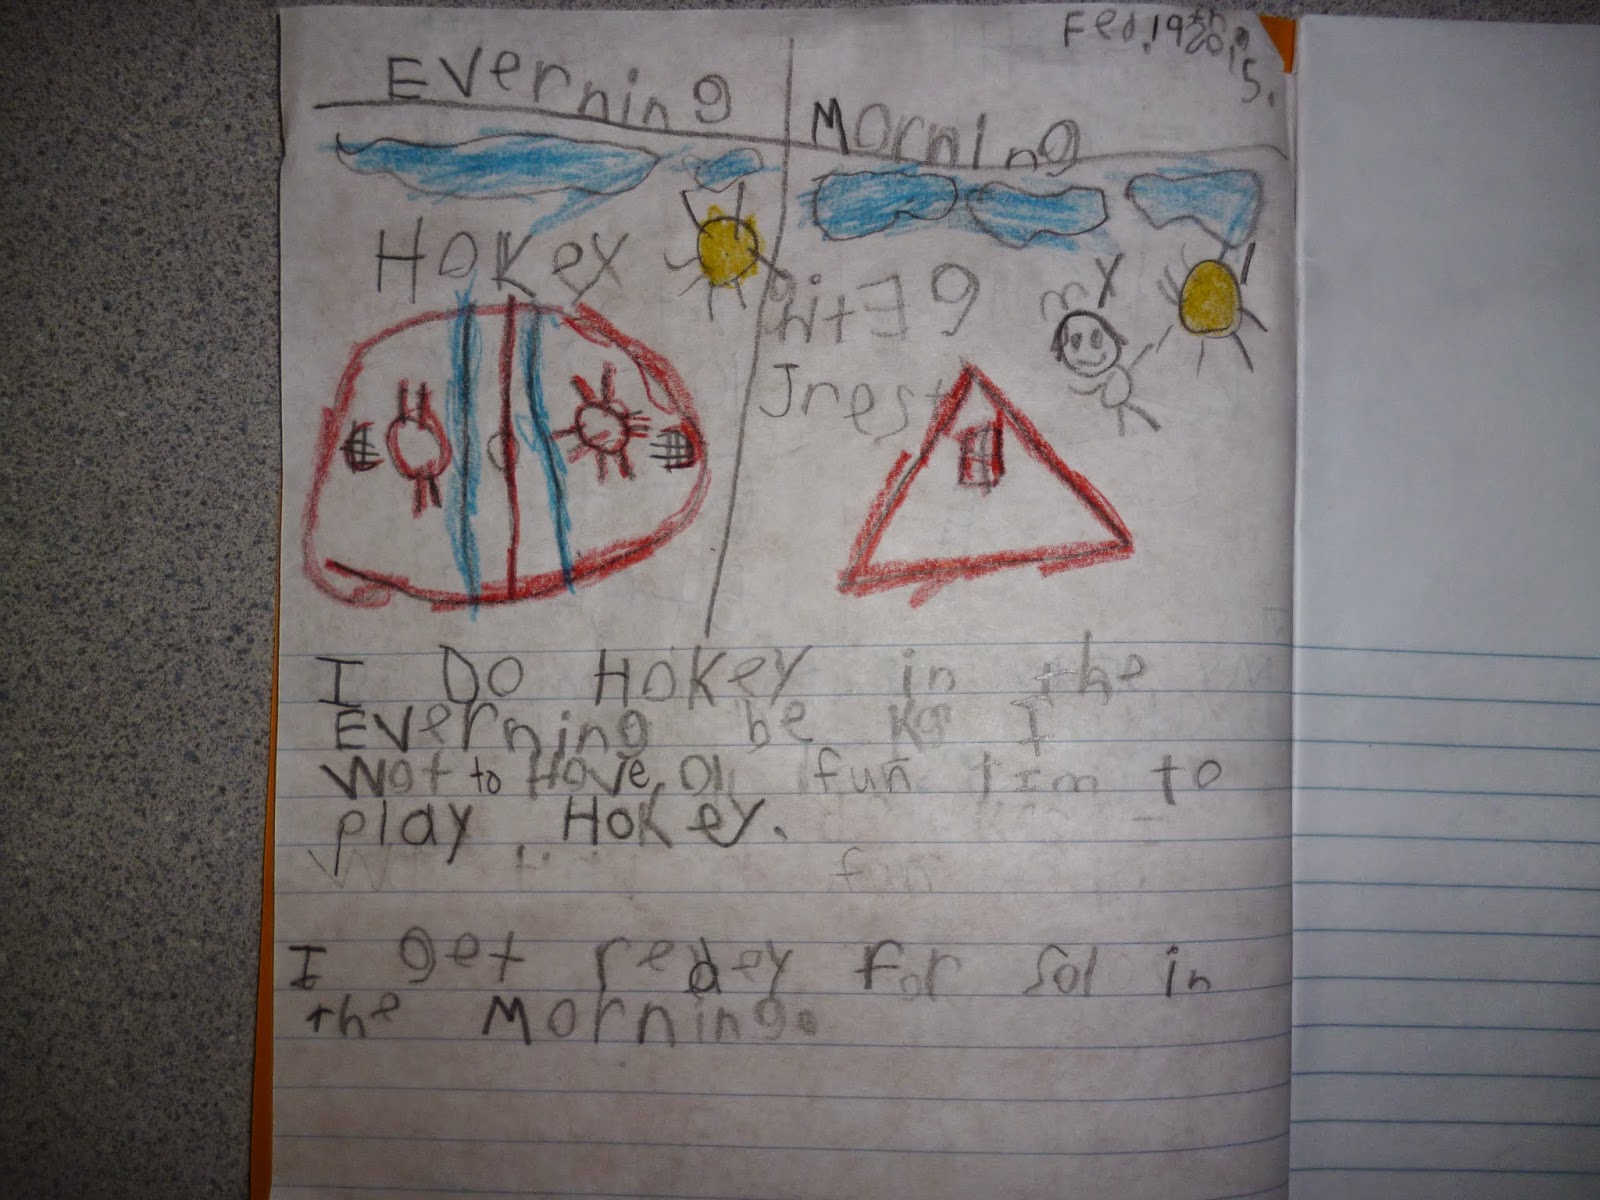 Feb.19th 2015.
Everning
Morning
Hokey
my
I Do Hokey in the
Everning be kos I
Wot to Have a fun tim to
play Hokey.
fun
I get redey for Sol in
the Morning.